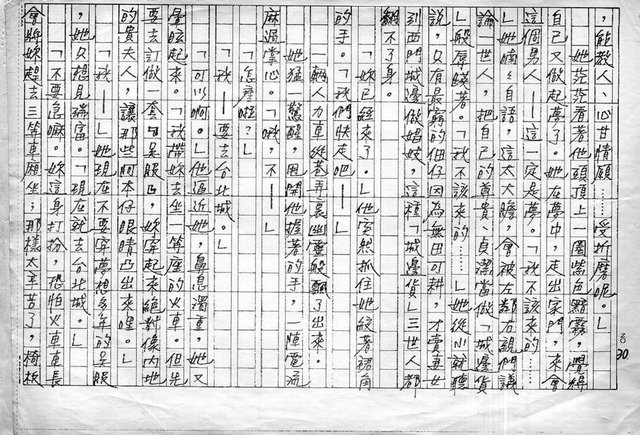 ，能教人、心甘情願……受折磨呢。」
她茫茫看著他頭頂上一圈紫色黯霧，覺得
自己又做起夢了。在夢中，走出家門，來會
這個男人——這一定是夢。「我不該來的……
」她喃喃自語，這太大膽，會被左鄰右親們議
論一世人，把自己的尊貴、貞潔當做「城邊貨
」般辱賤著。「我不該來的……」她從小就聽
說，只有最窮的佃仔因為無田可耕，才賣妻女
到西門城邊做娼妓，這種「城邊貨」三世人都
翻不了身。
「妳已經來了。」他突然抓住她絞著裙角
的手。「我們快走吧——」
一輛人力車從巷弄裏幽靈般飄了出來。
她猛一驚醒，甩開他握著的手，一陣電流
麻過掌心。「啊，不——」
「怎麼啦？」
「我——要去台北城。」
「可以啊。」他逼近她，鼻息濁重，她又
暈眩起來。「我帶妳去坐一等座的火車。但先
要去訂做一套吳服，妳穿起來絕對像內地
的貴夫人，讓那些阿本仔眼睛凸出來哩。」
「我——」她現在不要穿夢想多年的吳服
，她只想見瑞富。「現在就去台北城。」
「不要急嘛。妳這身打扮，恐怕火車車長
會將妳趕去三等車廂坐；那樣太辛苦了，椅板
30